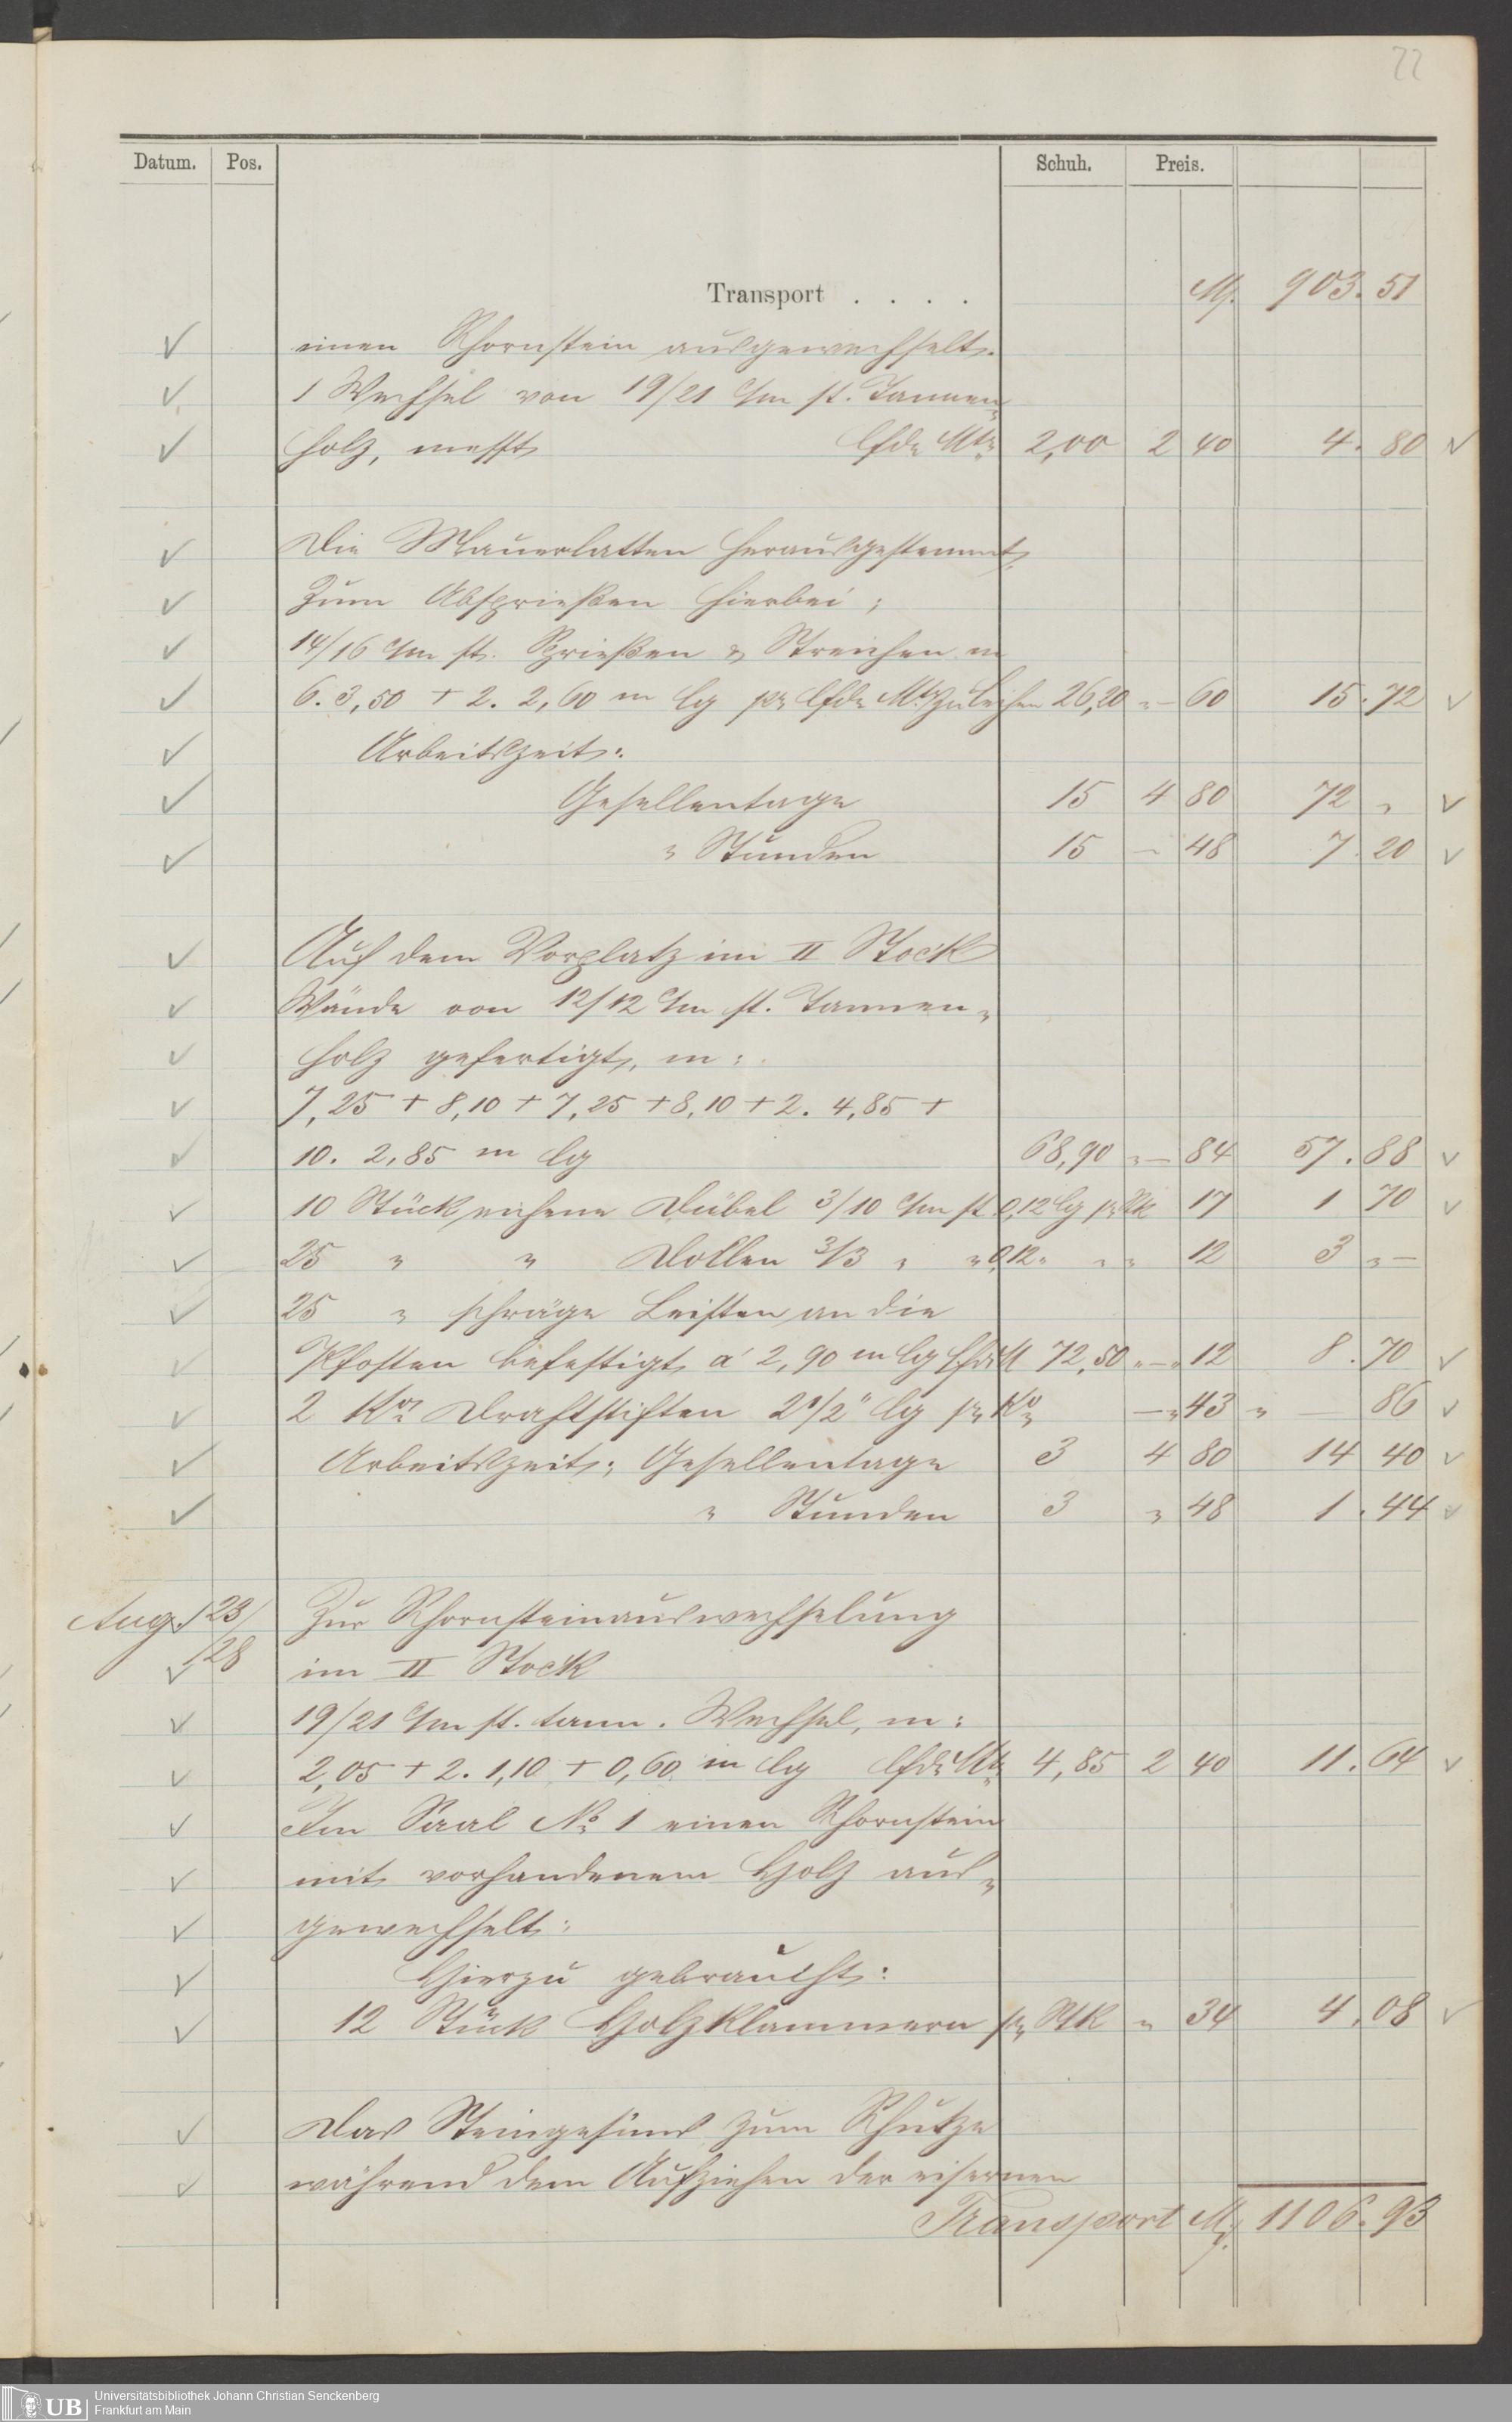 22
Datum. Pos. Schuh. Preis.
Transport . . . . M. 903. 51
einen Schornstein ausgewechselt.
1 Wechsel von 19/21 c/m st. Tannen„
holz, mißt lfde Mtr 2,00 2 40 4. 80
Die Mauerlatten herausgestemmt,
Zum Absprießen hierbei;
14/16 c/m st. Sprießen & Streichen m
6. 3,50 + 2. 2,60 m lg pr lfde Mtr zu leihen 26,20 „ — 60 15. 72
Arbeitszeit:
Gesellentage 15 4 80 72 „
„ Stunden 15 — 48 7. 20
Auf dem Vorplatz im II Stock
Wände von 12/12 c/m st. Tannen„
holz gefertigt, m:
7,25 + 8,10 + 7,25 + 8,10 + 2. 4,85 +
10. 2,85 m lg 68,90 „ — 84 57. 88
10 Stück eichene Dübel 3/10 c/m st 0,12 lg pr Stk 17 1 70
25 „ „ Dollen 3/3 „ „ 0,12 „ „ „ 12 3 „ —
25 „ schräge Leisten an die
Pfosten befestigt á 2,90 m lg lfde M 72,50 „ — „ 12 8. 70
2 Ko Drahtstiften 2 1/2" lg pr Ko — „ 43 „ 86
Arbeitszeit; Gesellentage 3 4 80 14 40
„ Stunden 3 „ 48 1. 44
Aug. 23/
28
Zur Schornsteinauswechselung
im II Stock
19/21 c/m st. tann. Wechsel, m:
2,05 + 2. 1,10 + 0,60 m lg lfde Mtr 4,85 2 40 11. 64
Im Saal No 1 einen Schornstein
mit vorhandenem Holz aus„
gewechselt:
Hierzu gebraucht:
12 Stück Holzklammern pr Stk „ 34 4. 08
Das Steingesims zum Schutze
während dem Aufziehen der eisernen
Transport M. 1106. 93
UB
Universitätsbibliothek Johann Christian Senckenberg
Frankfurt am Main